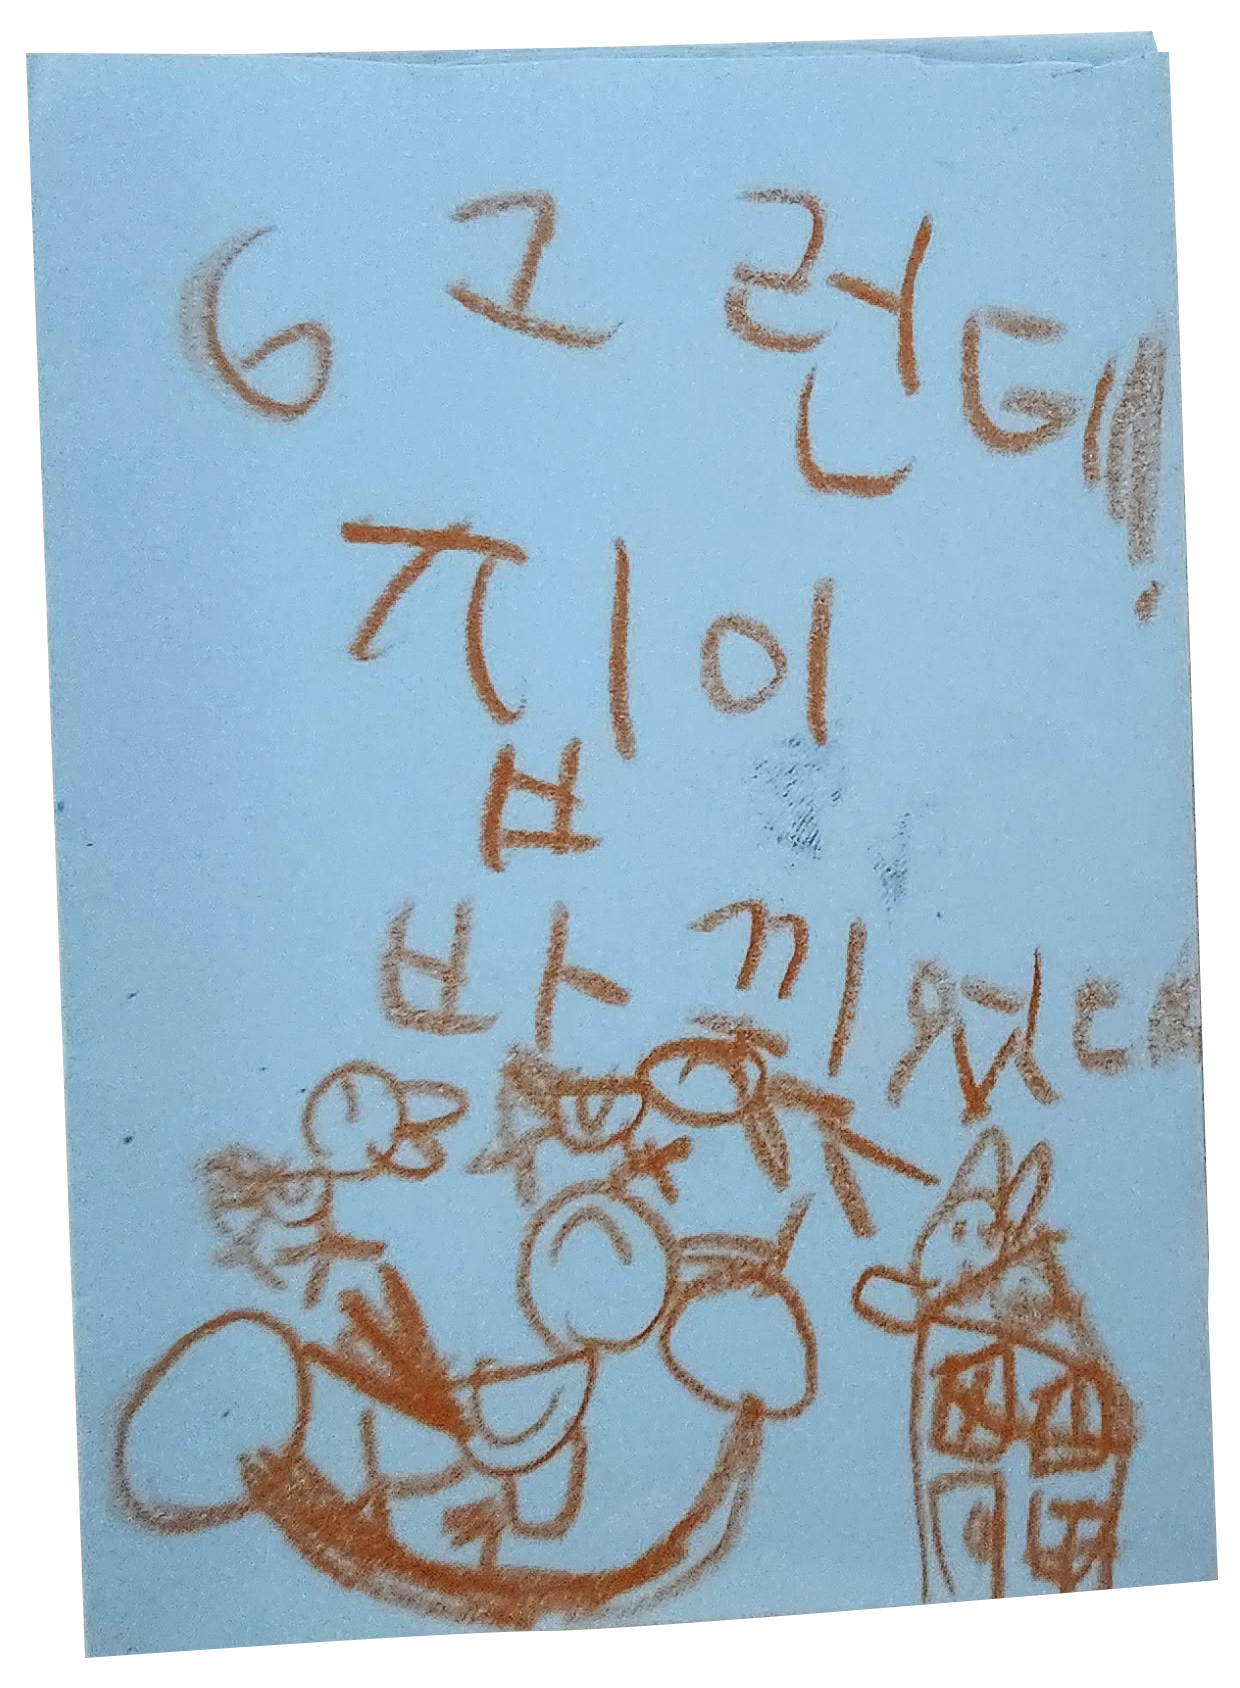 6 그런데
집이
바뀌었다